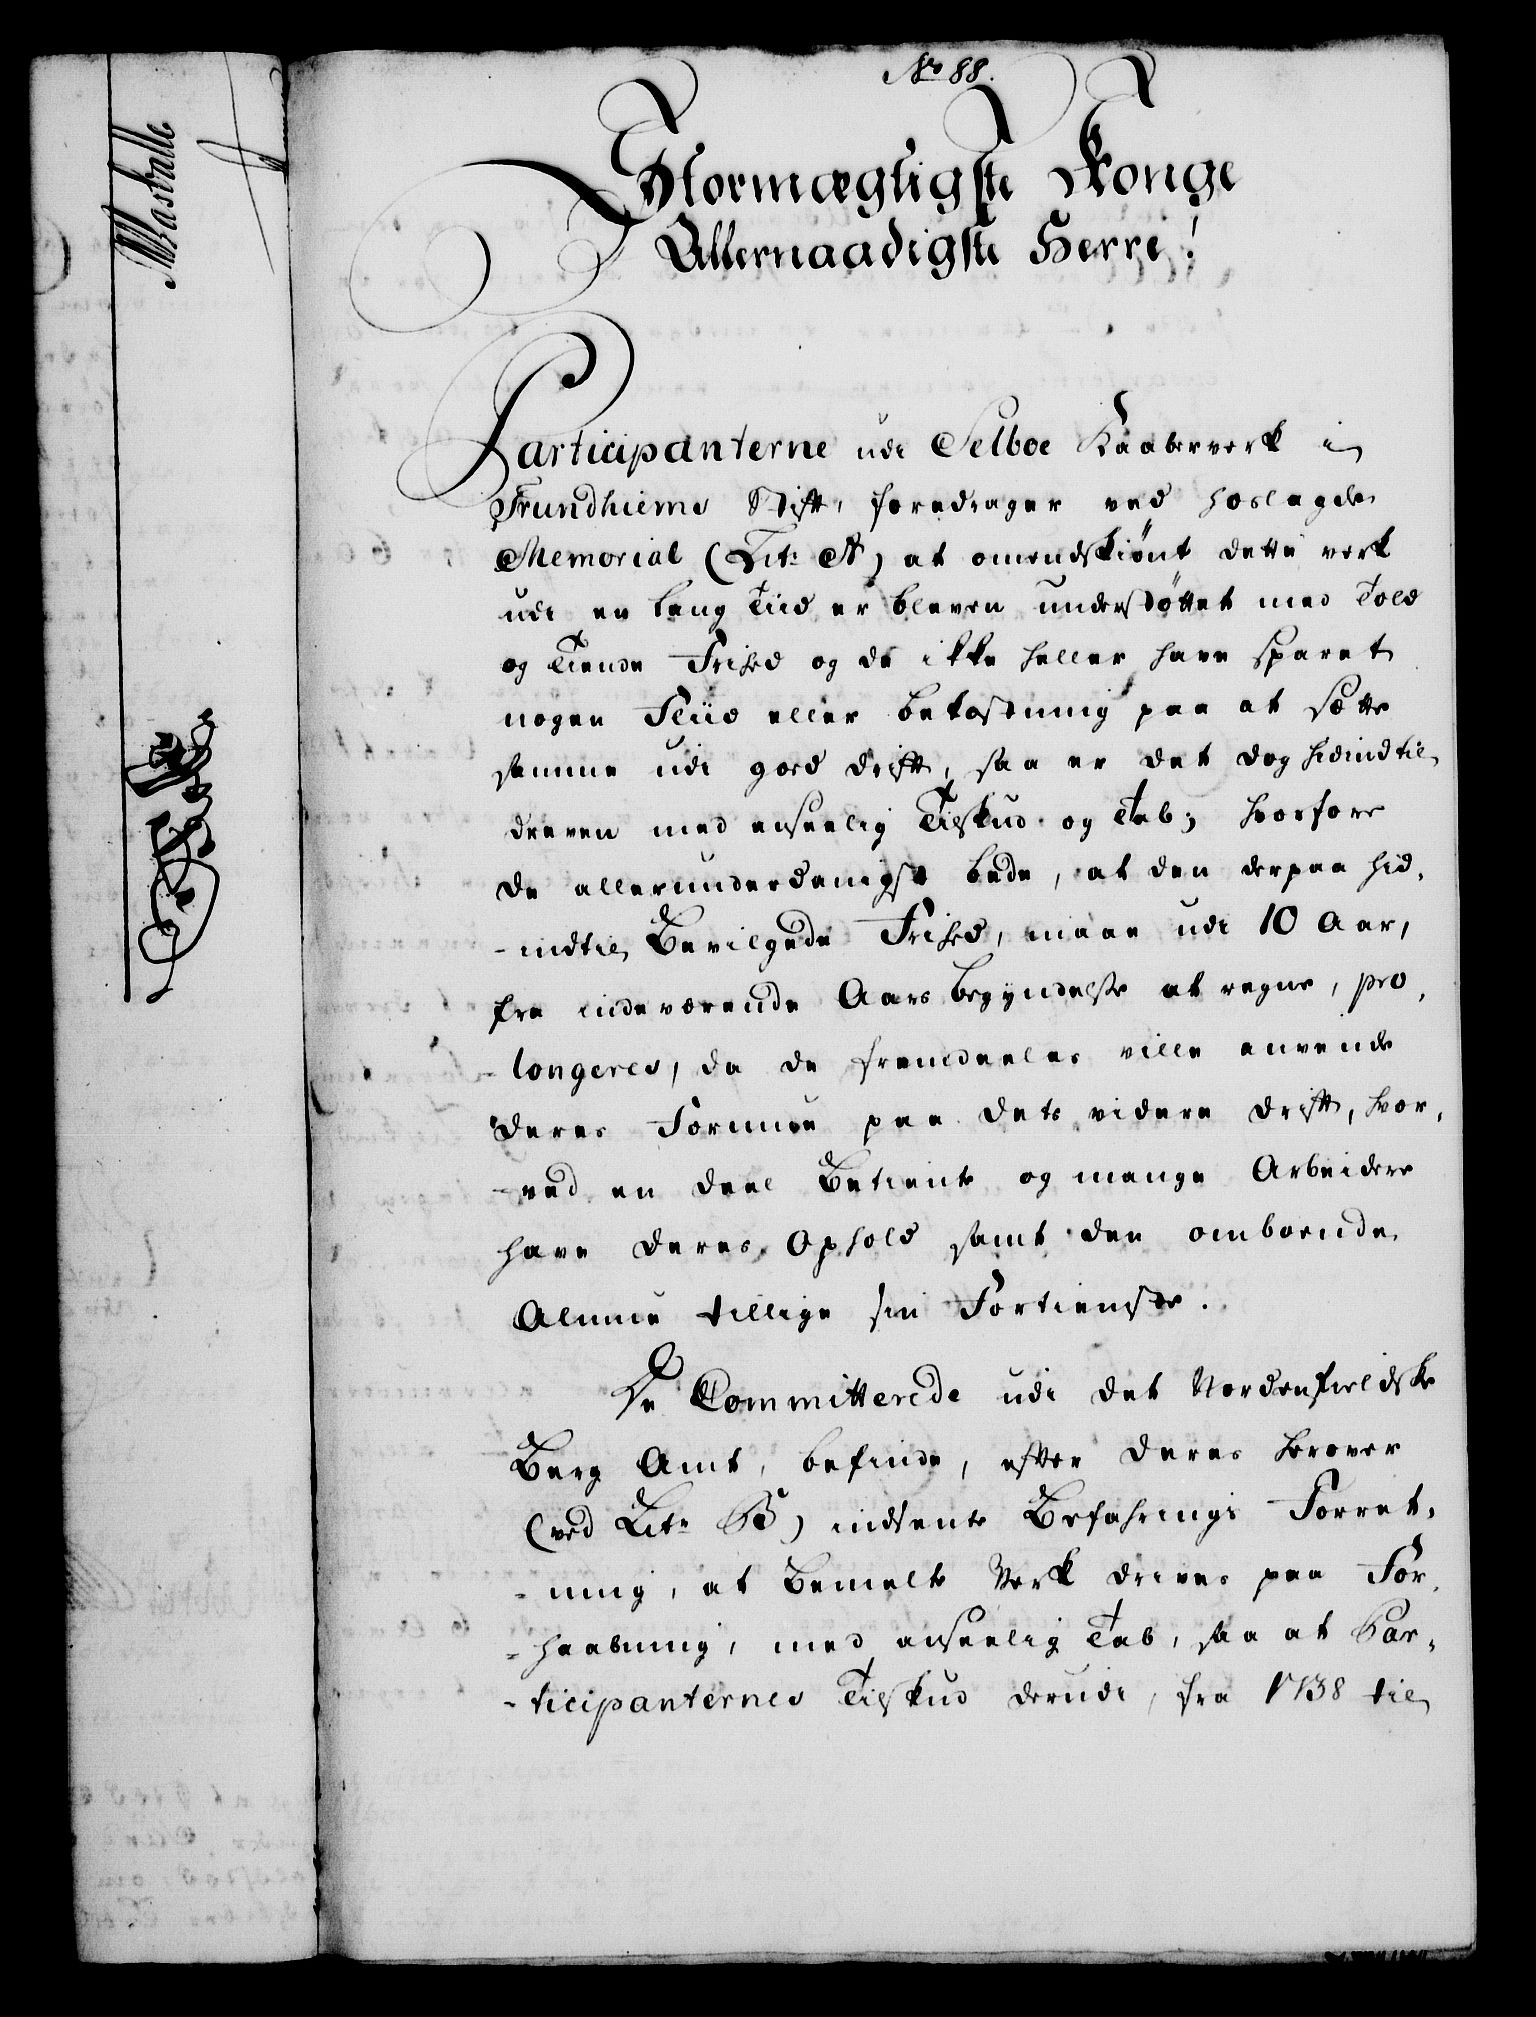 No 88.
Stormægtigste Konge
Allernaadigste Herre!
Participanterne udi Selboe Kaaberverk i
Trundhiems Stift, foredrager ved hoslagde
Memorial (Litr A) at omendskiönt dette verk
udi en lang Tiid er bleven understöttet med Told
og Tiende Frihed og de ikke heller have sparet
nogen Fliid eller bekostning paa at sætte
samme udi goed drift, saa er det dog hidindtil
dreven med anseelig Tilskud og Tab; hvorfore
de allerunderdanigst bede, at den derpaa hid-
-indtil Bevilgede Frihed, maae udi 10 Aar,
fra indeværende Aars begyndelse at regne, pro-
-longeres, da de fremdeeles ville anvende
deres Formue paa dets videre drift, hvor-
-ved en deel Betiente og mange Arbeidere
have deres Ophold samt den omboende
Almue tillige sin Fortieneste.
De Committerede udi det Nordenfieldske
Berg Amt, befinde, efter deres herover
(ved Litr B) indsente Befahrings Forret-
-ning, at bemelte Verk drives paa For-
-haabning, med anseelig Tab, saa at Par-
-ticipanternes Tilskud derudi, fra 1738 til